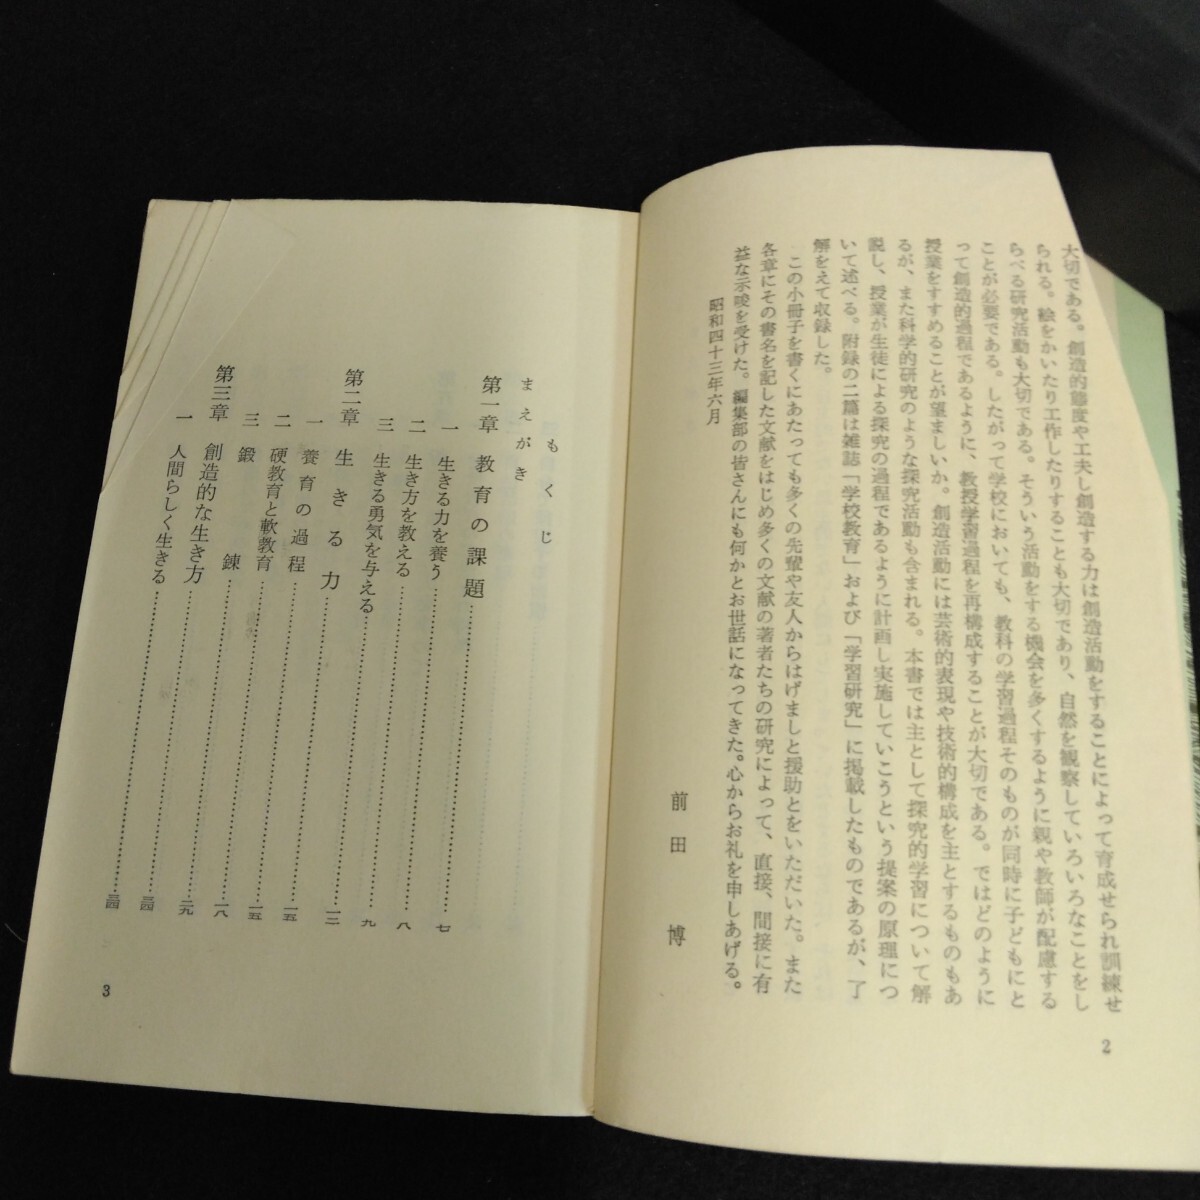 大切である。創造的態度や工夫し創造する力は創造活動をすることによって育成せられ訓練せ
られる。絵をかいたり工作したりすることも大切であり、自然を観察していろいろなことをし
らべる研究活動も大切である。そういう活動をする機会を多くするように親や教師が配慮する
ことが必要である。したがって学校においても、教科の学習過程そのものが同時に子どもにと
って創造的過程であるように、教授学習過程を再構成することが大切である。ではどのように
授業をすすめることが望ましいか。創造活動には芸術的表現や技術的構成を主とするものもあ
るが、また科学的研究のような探究活動も含まれる。本書では主として探究的学習について解
説し、授業が生徒による探究の過程であるように計画し実施していこうという提案の原理につ
いて述べる。附録の二篇は雑誌「学校教育」および「学習研究」に掲載したものであるが、了
解をえて収録した。
この小冊子を書くにあたっても多くの先輩や友人からはげましと援助とをいただいた。また
各章にその書名を記した文献をはじめ多くの文献の著者たちの研究によって、直接、間接に有
益な示唆を受けた。編集部の皆さんにも何かとお世話になってきた。心からお礼を申しあげる。
昭和四十三年六月
前田 博
2
もくじ
まえがき
第一章 教育の課題
一 生きる力を養う……七
二 生き方を教える……八
三 生きる勇気を与える……九
第二章 生きる力
一 養育の過程……一五
二 硬教育と軟教育……一五
三 鍛錬……一八
第三章 創造的な生き方
一 人間らしく生きる……二四
3